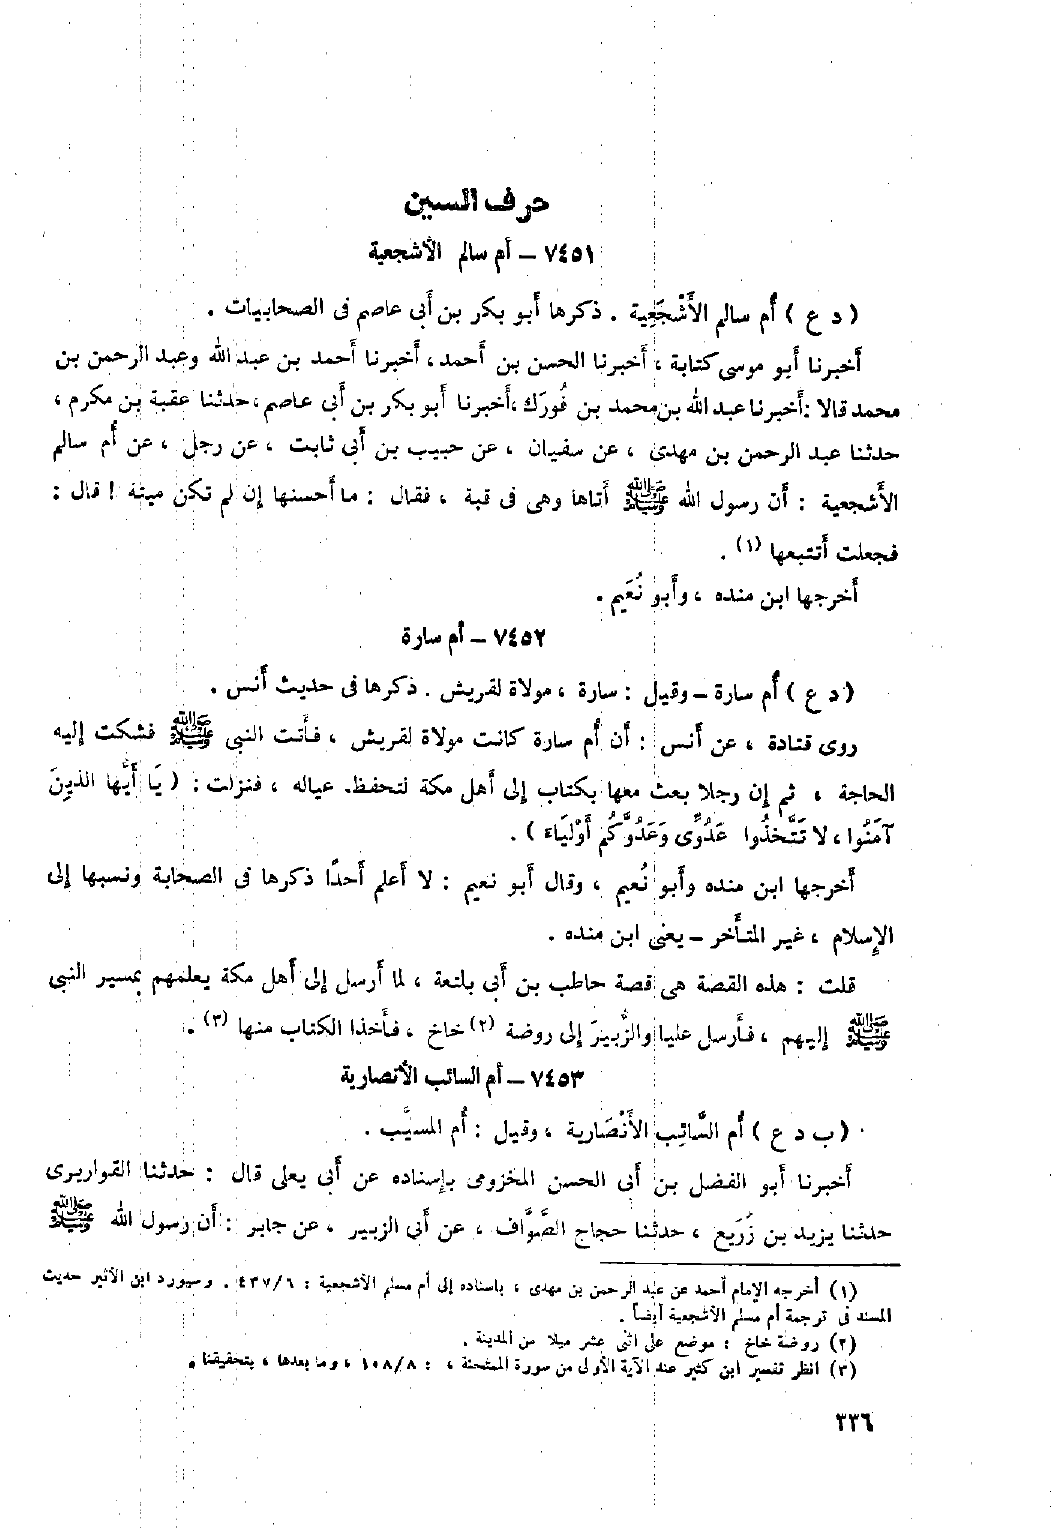 حرف السين
٧٤٥١ – أم سالم الأشجعية
( د ع ) أُم سالم الأَشْجَعِية . ذكرها أَبو بكر بن أَبى عاصم فى الصحابيات .
أَخبرنا أَبو موسى كتابة ، أَخبرنا الحسن بن أَحمد ، أَخبرنا أَحمد بن عبد الله وعبد الرحمن بن
محمد قالا : أَخبرنا عبد الله بن محمد بن فُورَك ، أَخبرنا أَبو بكر بن أَبى عاصم ، حدثنا عقبة بن مكرم ،
حدثنا عبد الرحمن بن مهدى ، عن سفيان ، عن حبيب بن أَبى ثابت ، عن رجل ، عن أُم سالم
الأَشجعية : أَن رسول الله ﷺ أَتاها وهى فى قبة ، فقال : ما أَحسنها إِن لم تكن ميتة ! قال :
فجعلت أَتتبعها (١) .
أَخرجها ابن منده ، وأَبو نُعَيم .
٧٤٥٢ – أم سارة
( د ع ) أُم سارة – وقيل : سارة ، مولاة لقريش . ذكرها فى حديث أَنس .
روى قتادة ، عن أَنس : أَن أُم سارة كانت مولاة لقريش ، فأَتت النبى ﷺ فشكت إليه
الحاجة ، ثم إن رجلا بعث معها بكتاب إلى أهل مكة لتحفظ عياله ، فنزلت : ( يَا أَيُّها الذين
آمَنُوا ، لا تَتَّخذُوا عَدُوِّى وَعَدُوَّكُم أَوْلِيَاءَ ) .
أَخرجها ابن منده وأَبو نُعيم ، وقال أَبو نعيم : لا أَعلم أَحدًا ذكرها فى الصحابة ونسبها إلى
الإسلام ، غير المتأَخر – يعنى ابن منده .
قلت : هذه القصة هى قصة حاطب بن أَبى بلتعة ، لما أَرسل إلى أَهل مكة يعلمهم بمسير النبى
ﷺ إليهم ، فأَرسل عليا والزُّبيرَ إلى روضة (٢) خاخ ، فأَخذا الكتاب منها (٣) .
٧٤٥٣ – أم السائب الأنصارية
( ب د ع ) أُم السَّائِب الأَنْصَارية ، وقيل : أُم المسيَّب .
أَخبرنا أَبو الفضل بن أَبى الحسن المخزومى بإسناده عن أَبى يعلى قال : حدثنا القواريرى
حدثنا يزيد بن زُرَيع ، حدثنا حجاج الصَّوَّاف ، عن أَبى الزبير ، عن جابر : أَن رسول الله ﷺ
(١) أخرجه الإمام أحمد عن عبد الرحمن بن مهدى ، بإسناده إلى أم مسلم الأشجعية : ٤٣٧/٦ . وسيورد ابن الأثير حديث
المسند فى ترجمة أم مسلم الأشجعية أيضاً .
(٢) روضة خاخ : موضع على اثنى عشر ميلا من المدينة .
(٣) انظر تفسير ابن كثير عند الآية الأولى من سورة الممتحنة ، : ١٠٨/٨ ، وما بعدها ، بتحقيقنا .
٣٣٦